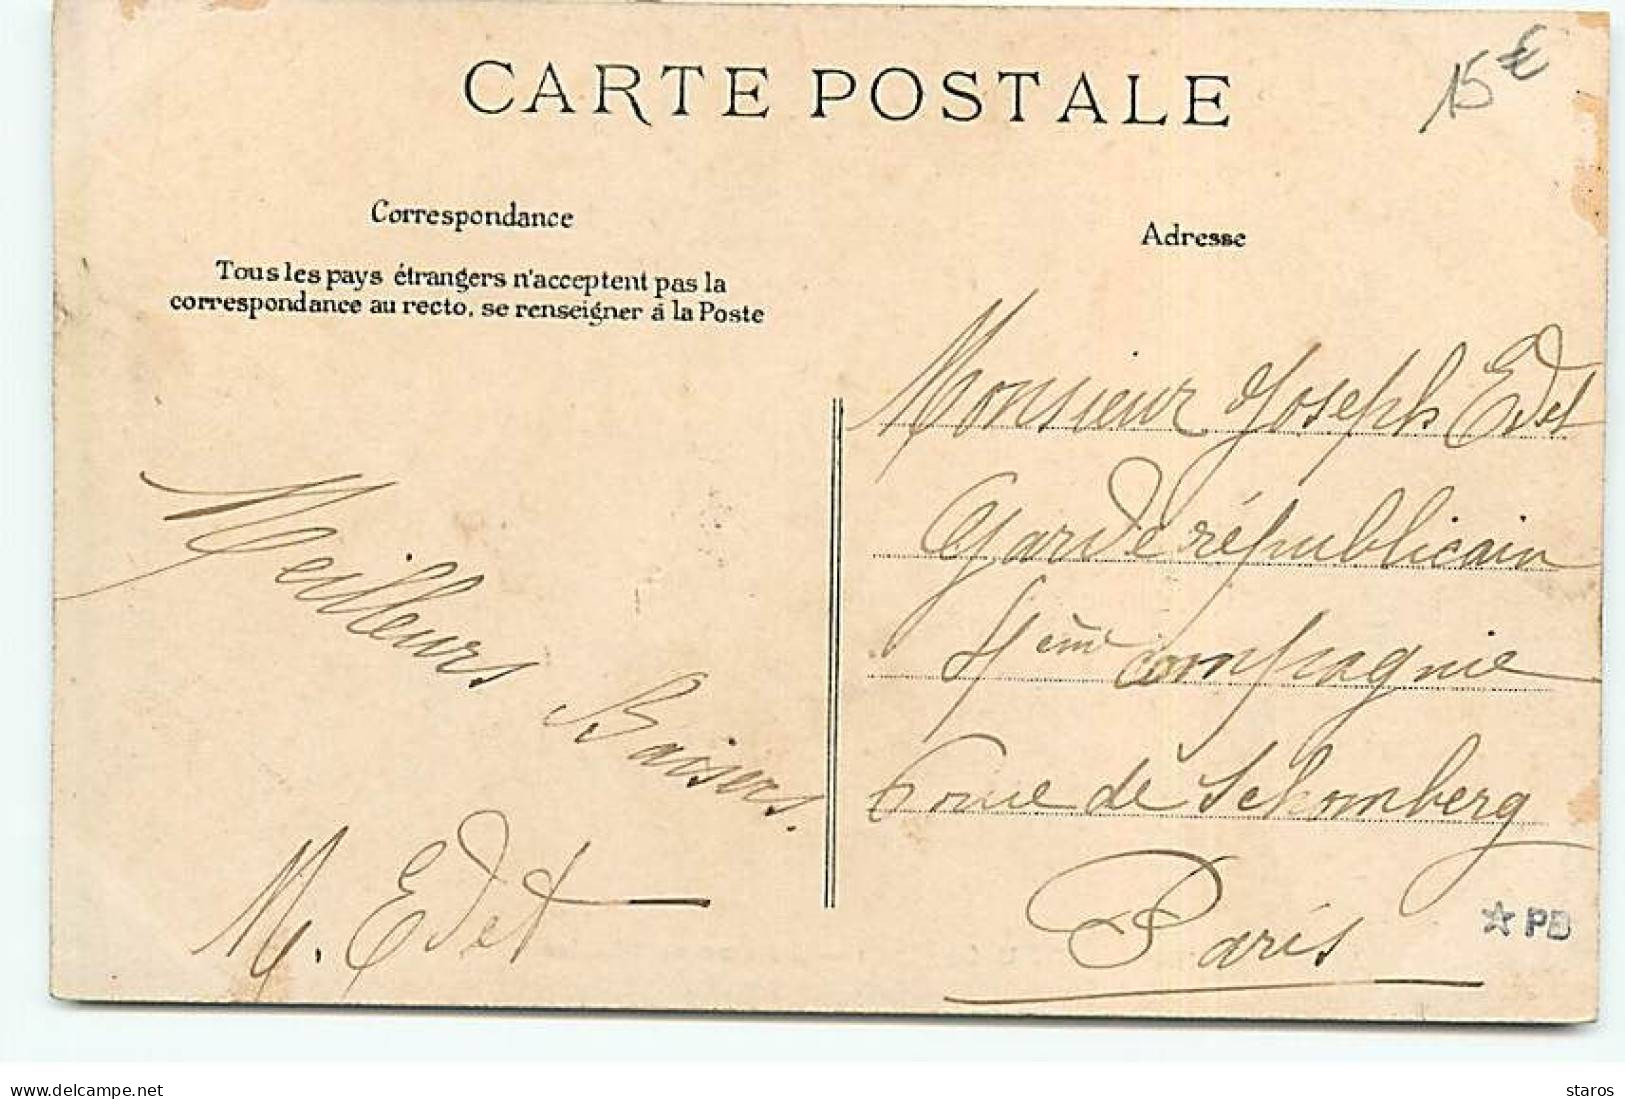 CARTE POSTALE
15€
Correspondance
Tous les pays étrangers n'acceptent pas la
correspondance au recto, se renseigner à la Poste
Meilleurs Baisers.
M. Edet
Adresse
Monsieur Joseph Edet
Garde républicain
4ème compagnie
rue de Schomberg
Paris
☆ PB
www.delcampe.net
staros